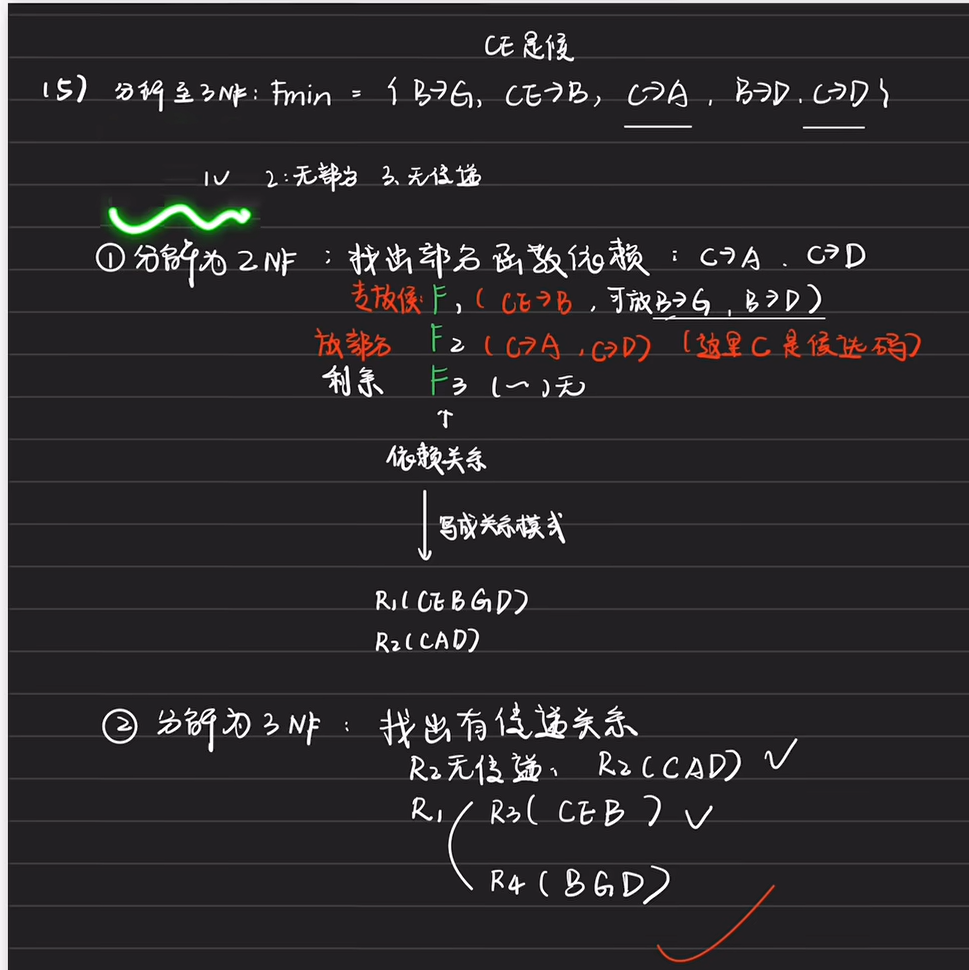 CE是候
(5) 分解至3NF: Fmin = { B→G, CE→B, C→A, B→D, C→D }
1√ 2:无部分 3、无传递
① 分解为2NF : 找出部分函数依赖 : C→A 、C→D
主放候: F1 ( CE→B , 可放B→G , B→D )
放部分 F2 ( C→A , C→D ) (这里C是候选码)
剩余 F3 (~)无
↑
依赖关系
↓ 写成关系模式
R1(CEBGD)
R2(CAD)
② 分解为3NF : 找出有传递关系
R2无传递: R2(CAD) √
R1 R3( CEB ) √
R4 ( BGD )